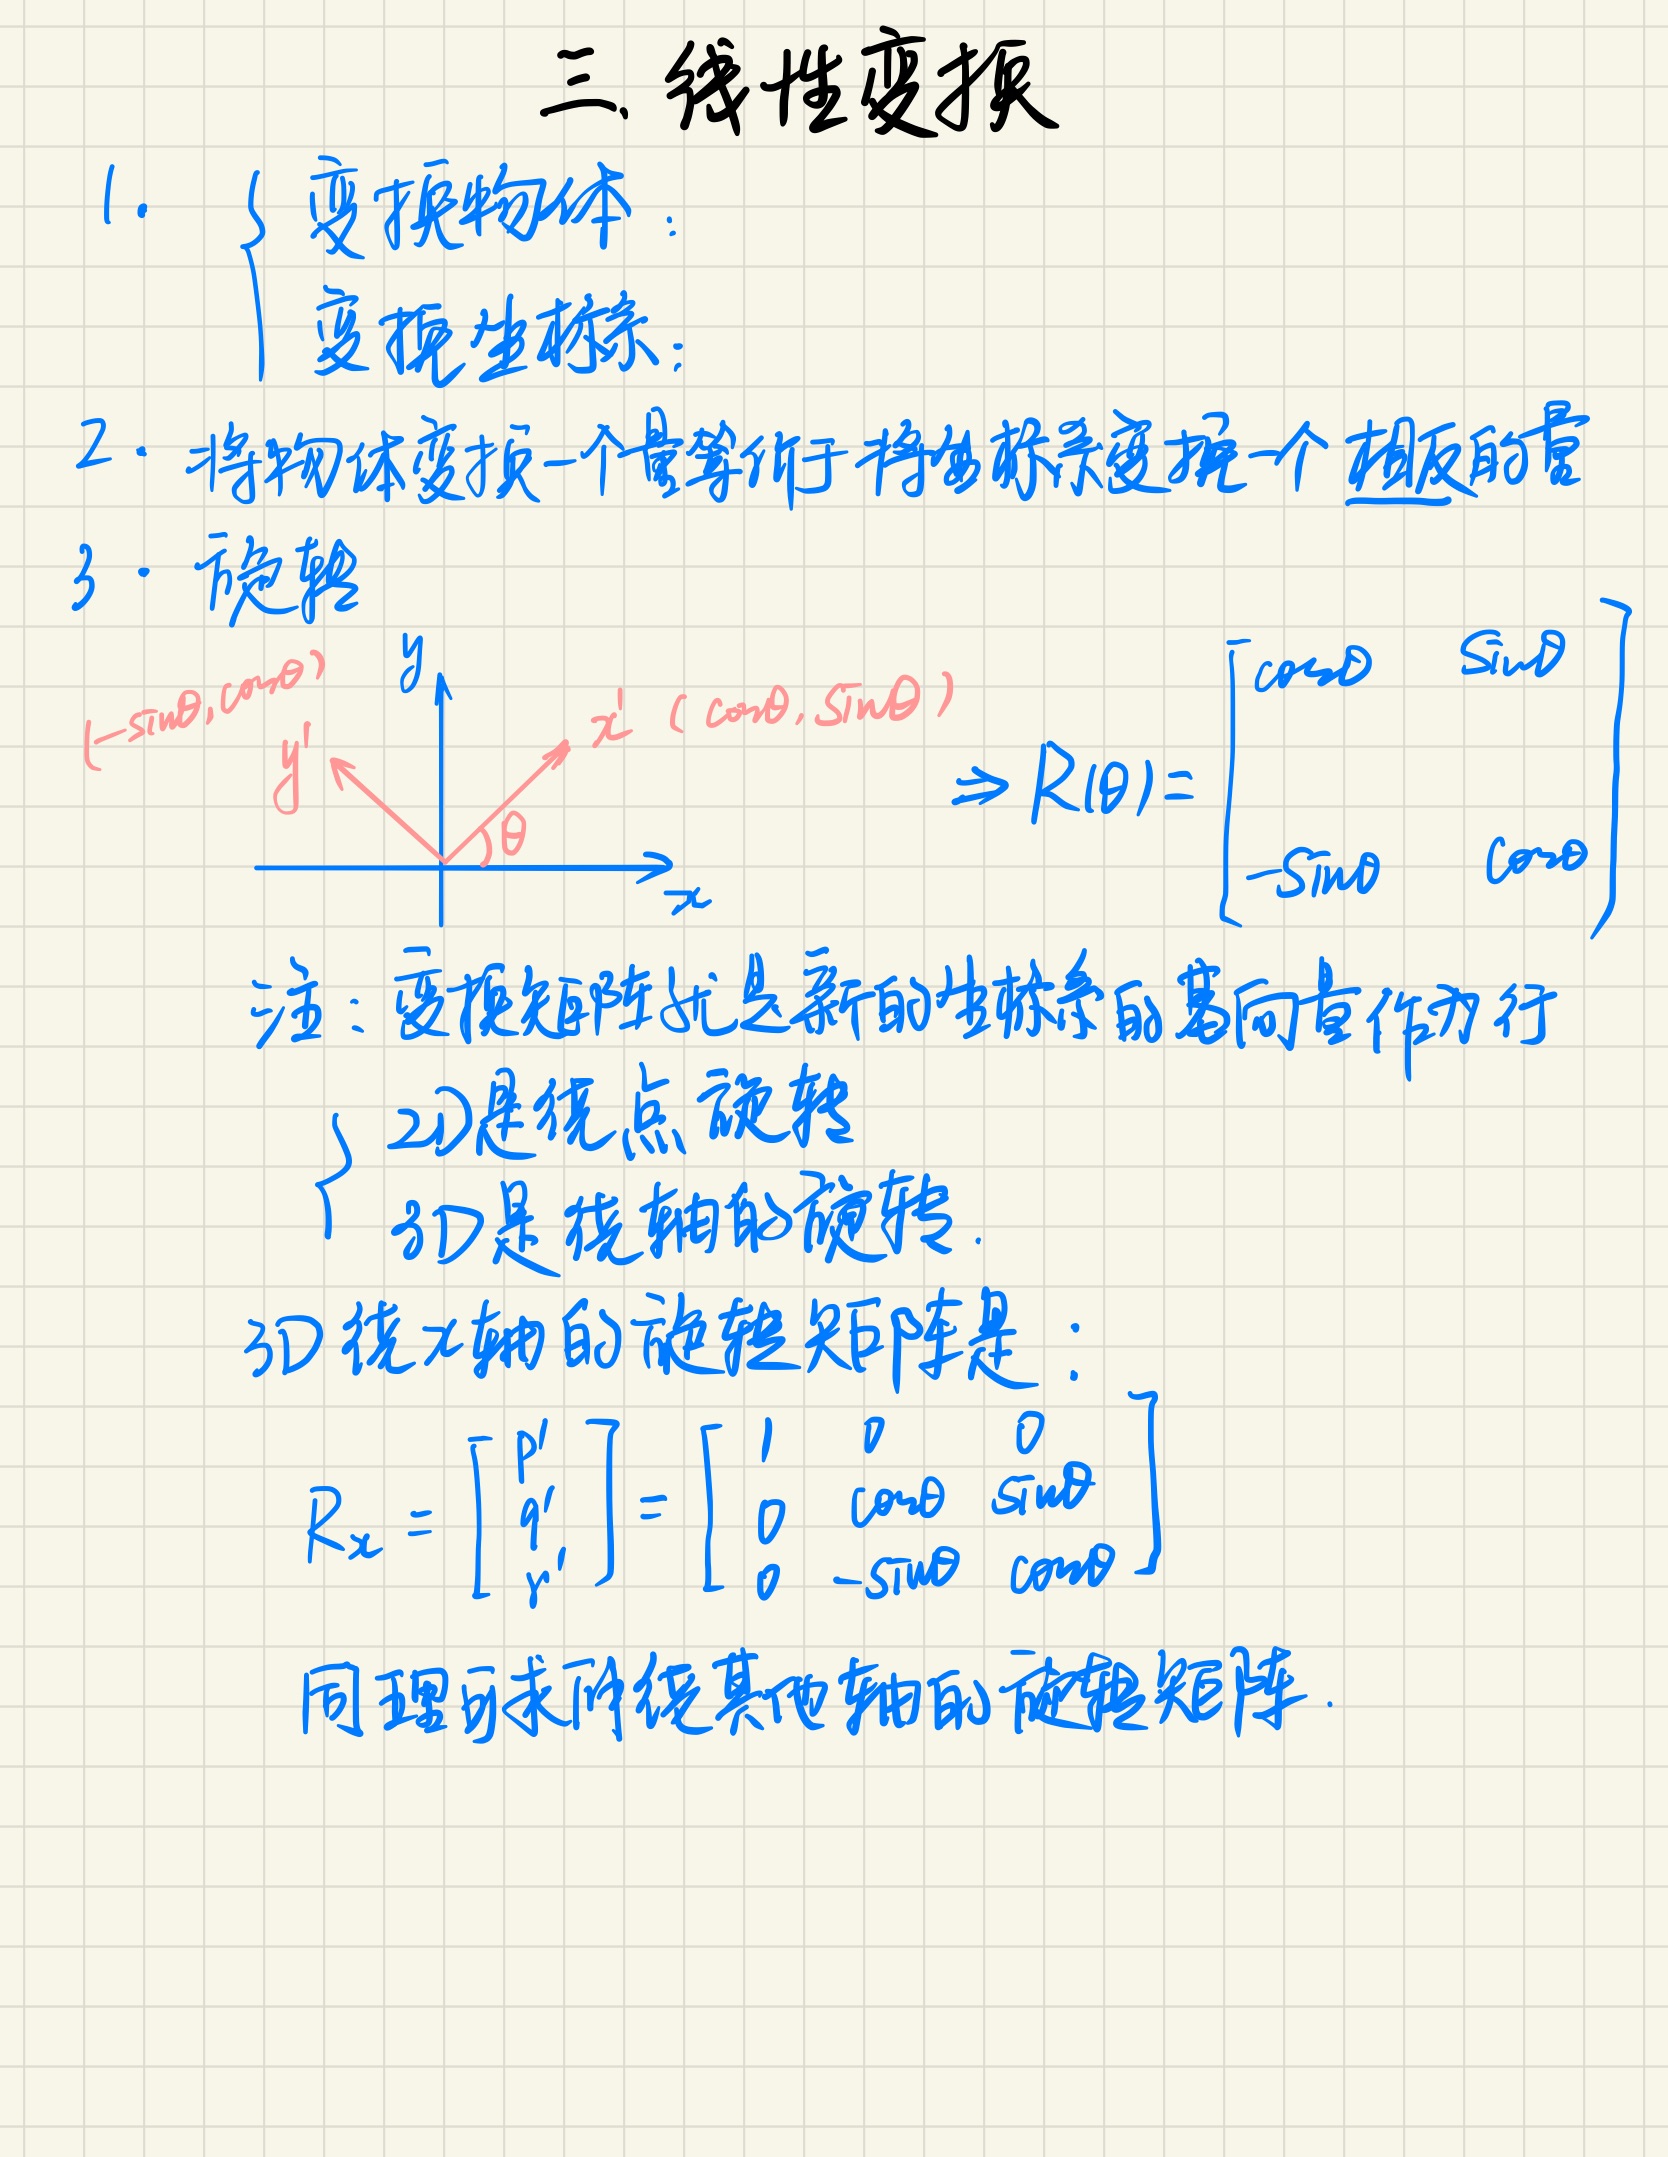 三.线性变换
1. { 变换物体:
变换坐标系:
2. 将物体变换一个量等价于将坐标系变换一个相反的量
3. 旋转
(-sinθ, cosθ) y' y x' (cosθ, sinθ) θ x
⇒ R(θ) = [ cosθ sinθ
-sinθ cosθ ]
注: 变换矩阵就是新的坐标系的基向量作为行
{ 2D是绕点旋转
3D是绕轴的旋转.
3D绕x轴的旋转矩阵是:
Rx = [ p' q' r' ] = [ 1 0 0
0 cosθ sinθ
0 -sinθ cosθ ]
同理可求所绕其他轴的旋转矩阵.